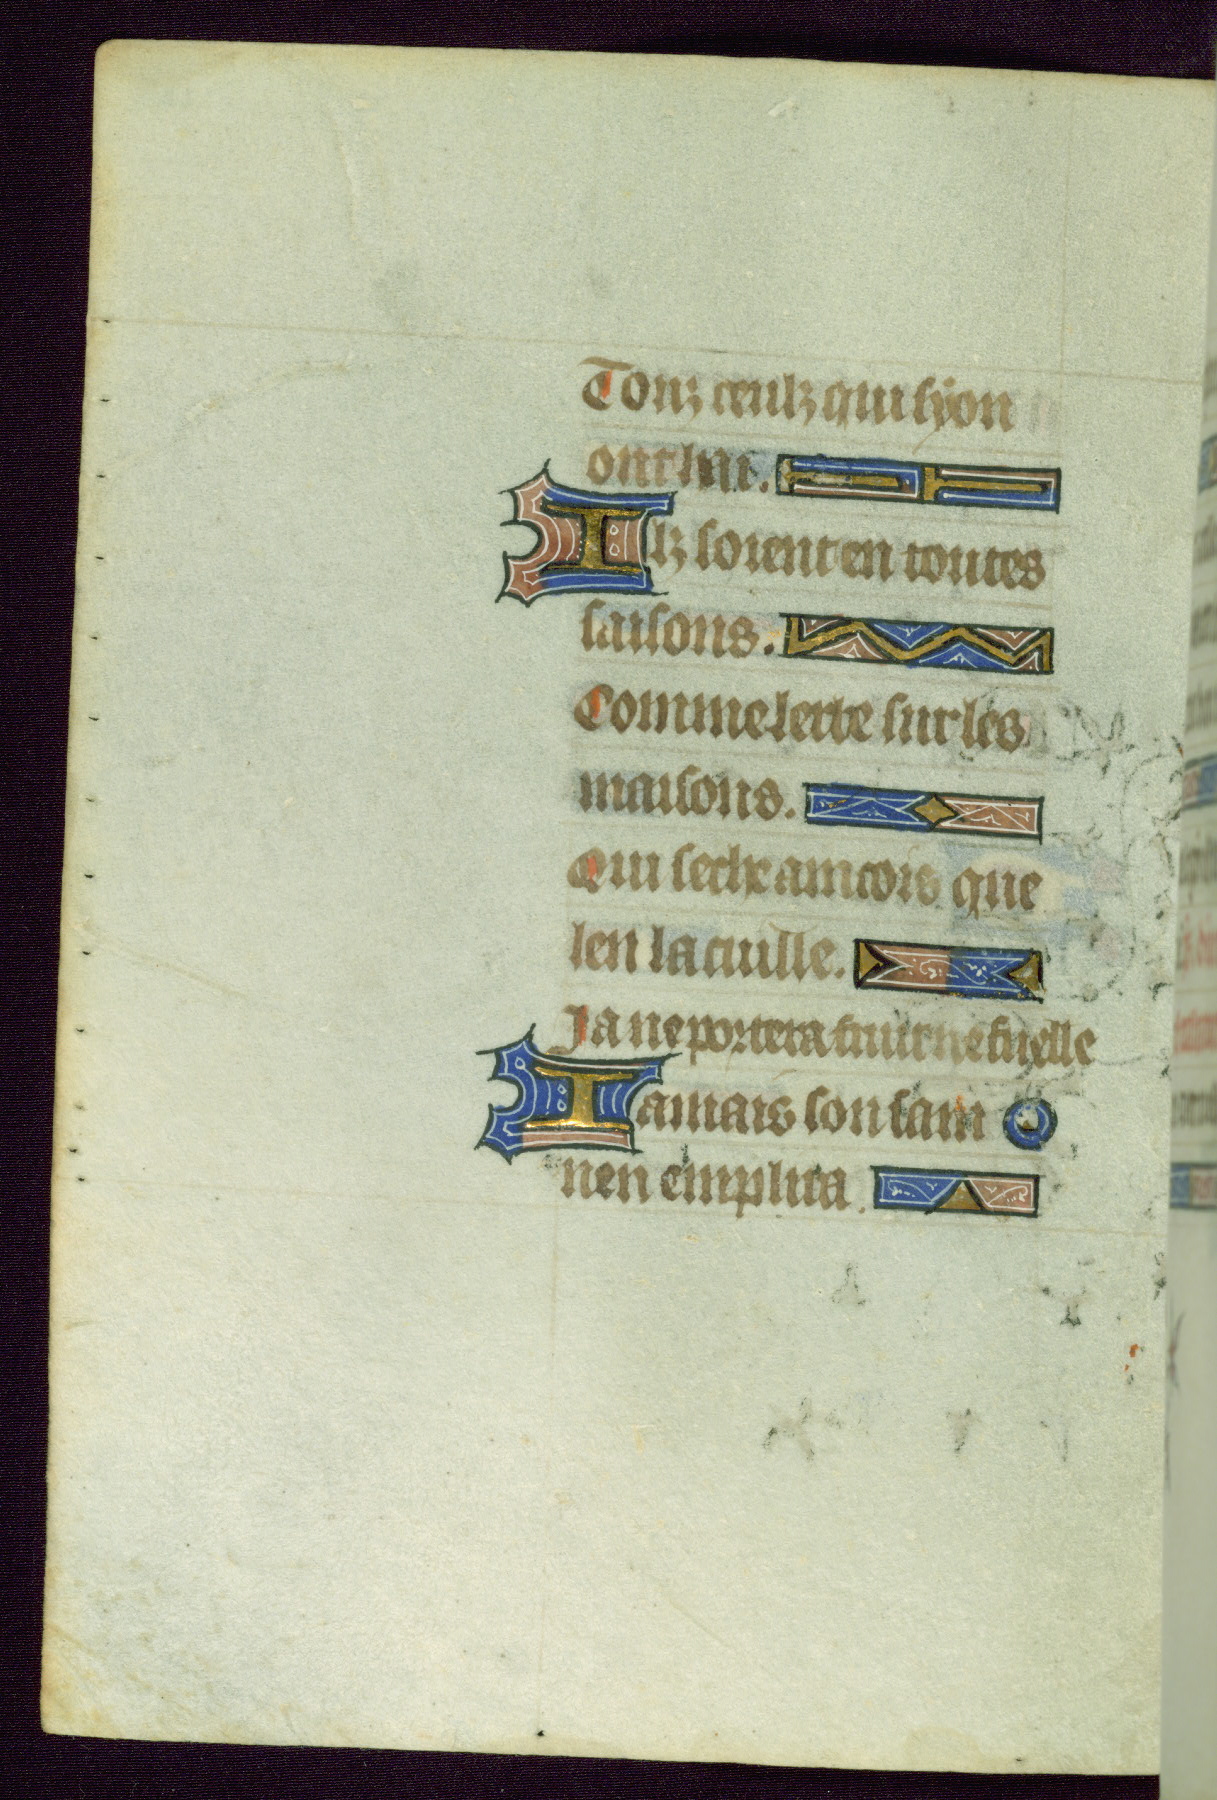 Touz ceulz qui syon
ont hai.
Ilz soient en toutes
saisons.
Comme lerbe sur les
maisons.
Qui seche aincois que
len la cuille.
Ja ne portera fruit ne fuelle
Iamais son sain
nen emplira.